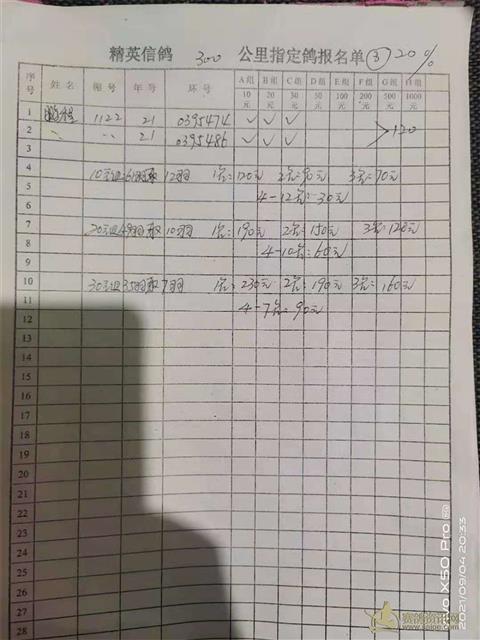 精英信鸽 300 公里指定鸽报名单 ③ 20%
序号 姓名 棚号 年号 环号 A组 B组 C组 D组 E组 F组 G组 H组
10元 20元 30元 50元 100元 200元 500元 1000元
1 鹏程 1122 21 0395474 ✓ ✓ ✓
2 〃 〃 21 0395486 ✓ ✓ ✓ >120
3
4 10元组61羽取12羽 1名:120元 2名:90元 3名:70元
5 4-12名:30元
6
7 20元组49羽取10羽 1名:190元 2名:150元 3名:120元
8 4-10名:60元
9
10 30元组35羽取7羽 1名:230元 2名:190元 3名:160元
11 4-7名:90元
12
13
14
15
16
17
18
19
20
21
22
23
24
25
26
27
28
vivo X50 Pro 5G
2021/09/04 20:33
赛鸽资讯网